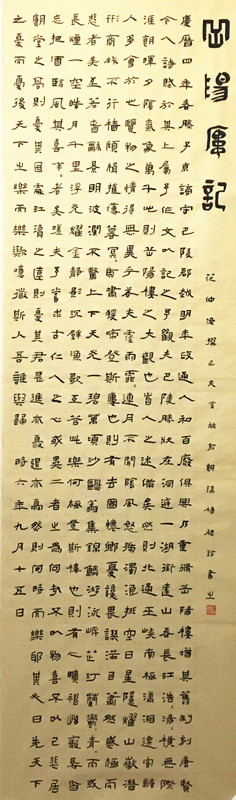 岳陽樓記
范仲淹撰
慶曆四年春滕子京謫守巴陵郡越明年政通人和百廢俱興乃重脩岳陽樓增其舊制刻唐賢
今人詩賦於其上屬予作文以記之予觀夫巴陵勝狀在洞庭一湖銜遠山吞長江浩浩湯湯橫無際
涯朝暉夕陰氣象萬千此則岳陽樓之大觀也前人之述備矣然則北通巫峽南極瀟湘遷客騷
人多會於此覽物之情得無異乎若夫霪雨霏霏連月不開陰風怒號濁浪排空日星隱耀山嶽潛
形商旅不行檣傾楫摧薄暮冥冥虎嘯猿啼登斯樓也則有去國懷鄉憂讒畏譏滿目蕭然感極而
悲者矣至若春和景明波瀾不驚上下天光一碧萬頃沙鷗翔集錦鱗游泳岸芷汀蘭郁郁青青而或
長煙一空皓月千里浮光躍金靜影沉璧漁歌互答此樂何極登斯樓也則有心曠神怡寵辱皆
忘把酒臨風其喜洋洋者矣嗟夫予嘗求古仁人之心或異二者之為何哉不以物喜不以己悲居
廟堂之高則憂其民處江湖之遠則憂其君是進亦憂退亦憂然則何時而樂耶其必曰先天下
之憂而憂後天下之樂而樂歟噫微斯人吾誰與歸時六年九月十五日